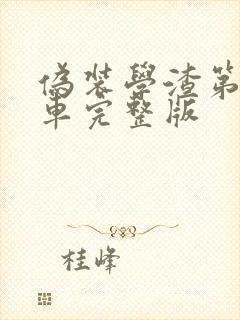 偽裝學渣第
車完整版
桂峰